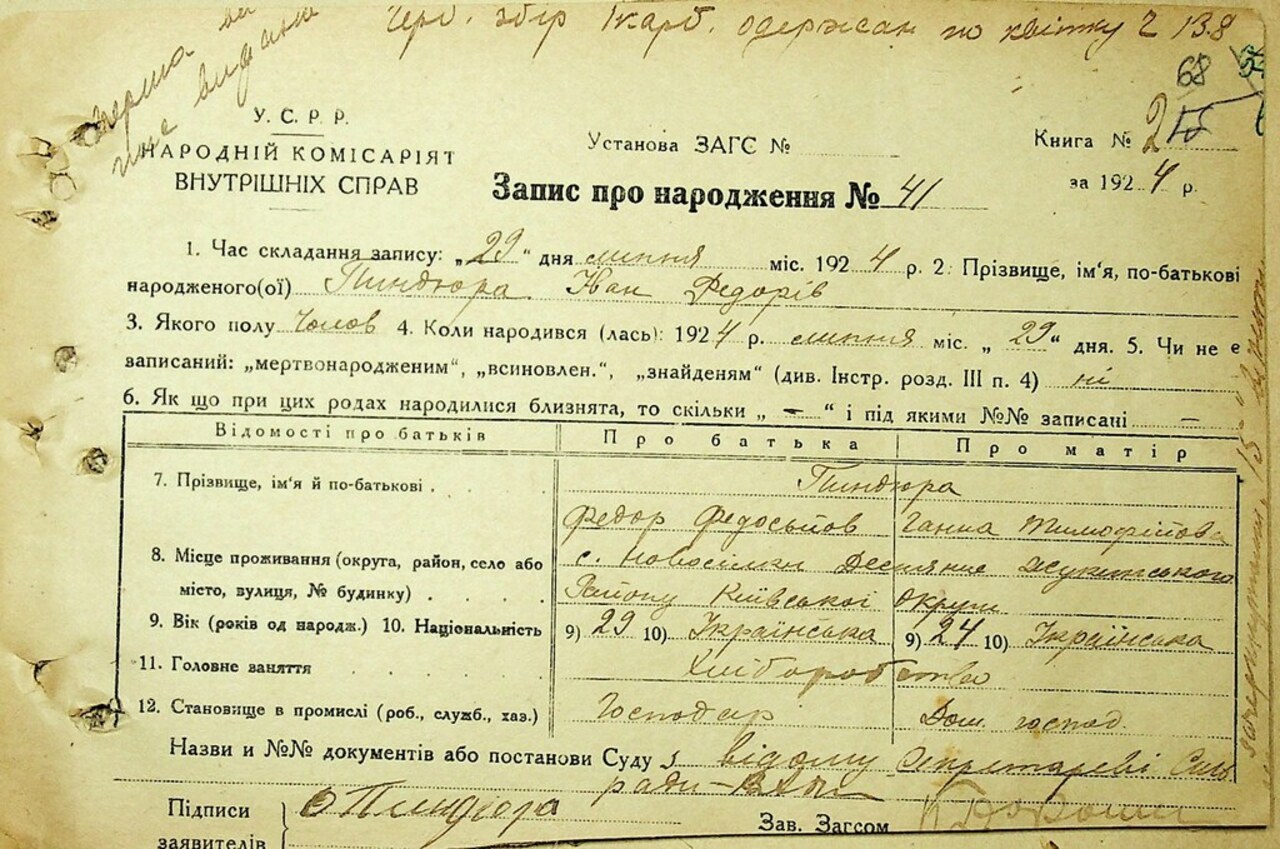 Герб. збір 1 карб. одержан по квітку Ч 138
68
У. С. Р. Р.
НАРОДНІЙ КОМІСАРІЯТ
ВНУТРІШНІХ СПРАВ
Установа ЗАГС №
Книга № 2
за 1924 р.
Запис про народження № 41
1. Час складання запису: „29“ дня липня міс. 1924 р. 2. Прізвище, ім'я, по-батькові
народженого(ої) Пиндюра Іван Федорів
3. Якого полу Чолов 4. Коли народився (лась): 1924 р. липня міс. „29“ дня. 5. Чи не є
записаний: „мертвонародженим“, „всиновлен.“, „знайденям“ (див. Інстр. розд. III п. 4) ні
6. Як що при цих родах народилися близнята, то скільки „ — “ і під якими №№ записані —
Відомості про батьків Про батька Про матір
7. Прізвище, ім'я й по-батькові Пиндюра
Федор Федосьйов Ганна Тимофійова
8. Місце проживання (округа, район, село або
місто, вулиця, № будинку)
с. Новосілки
Району Київської округи
9. Вік (років од народж.) 10. Національність 9) 29 10) Українська 9) 24 10) Українська
11. Головне заняття Хліборобство
12. Становище в промислі (роб., служб., хаз.) Господар Дом. господ.
Назви и №№ документів або постанови Суду відому Секретареві Сіль
ради
Підписи
заявителів
Ф Пиндюра
Зав. Загсом